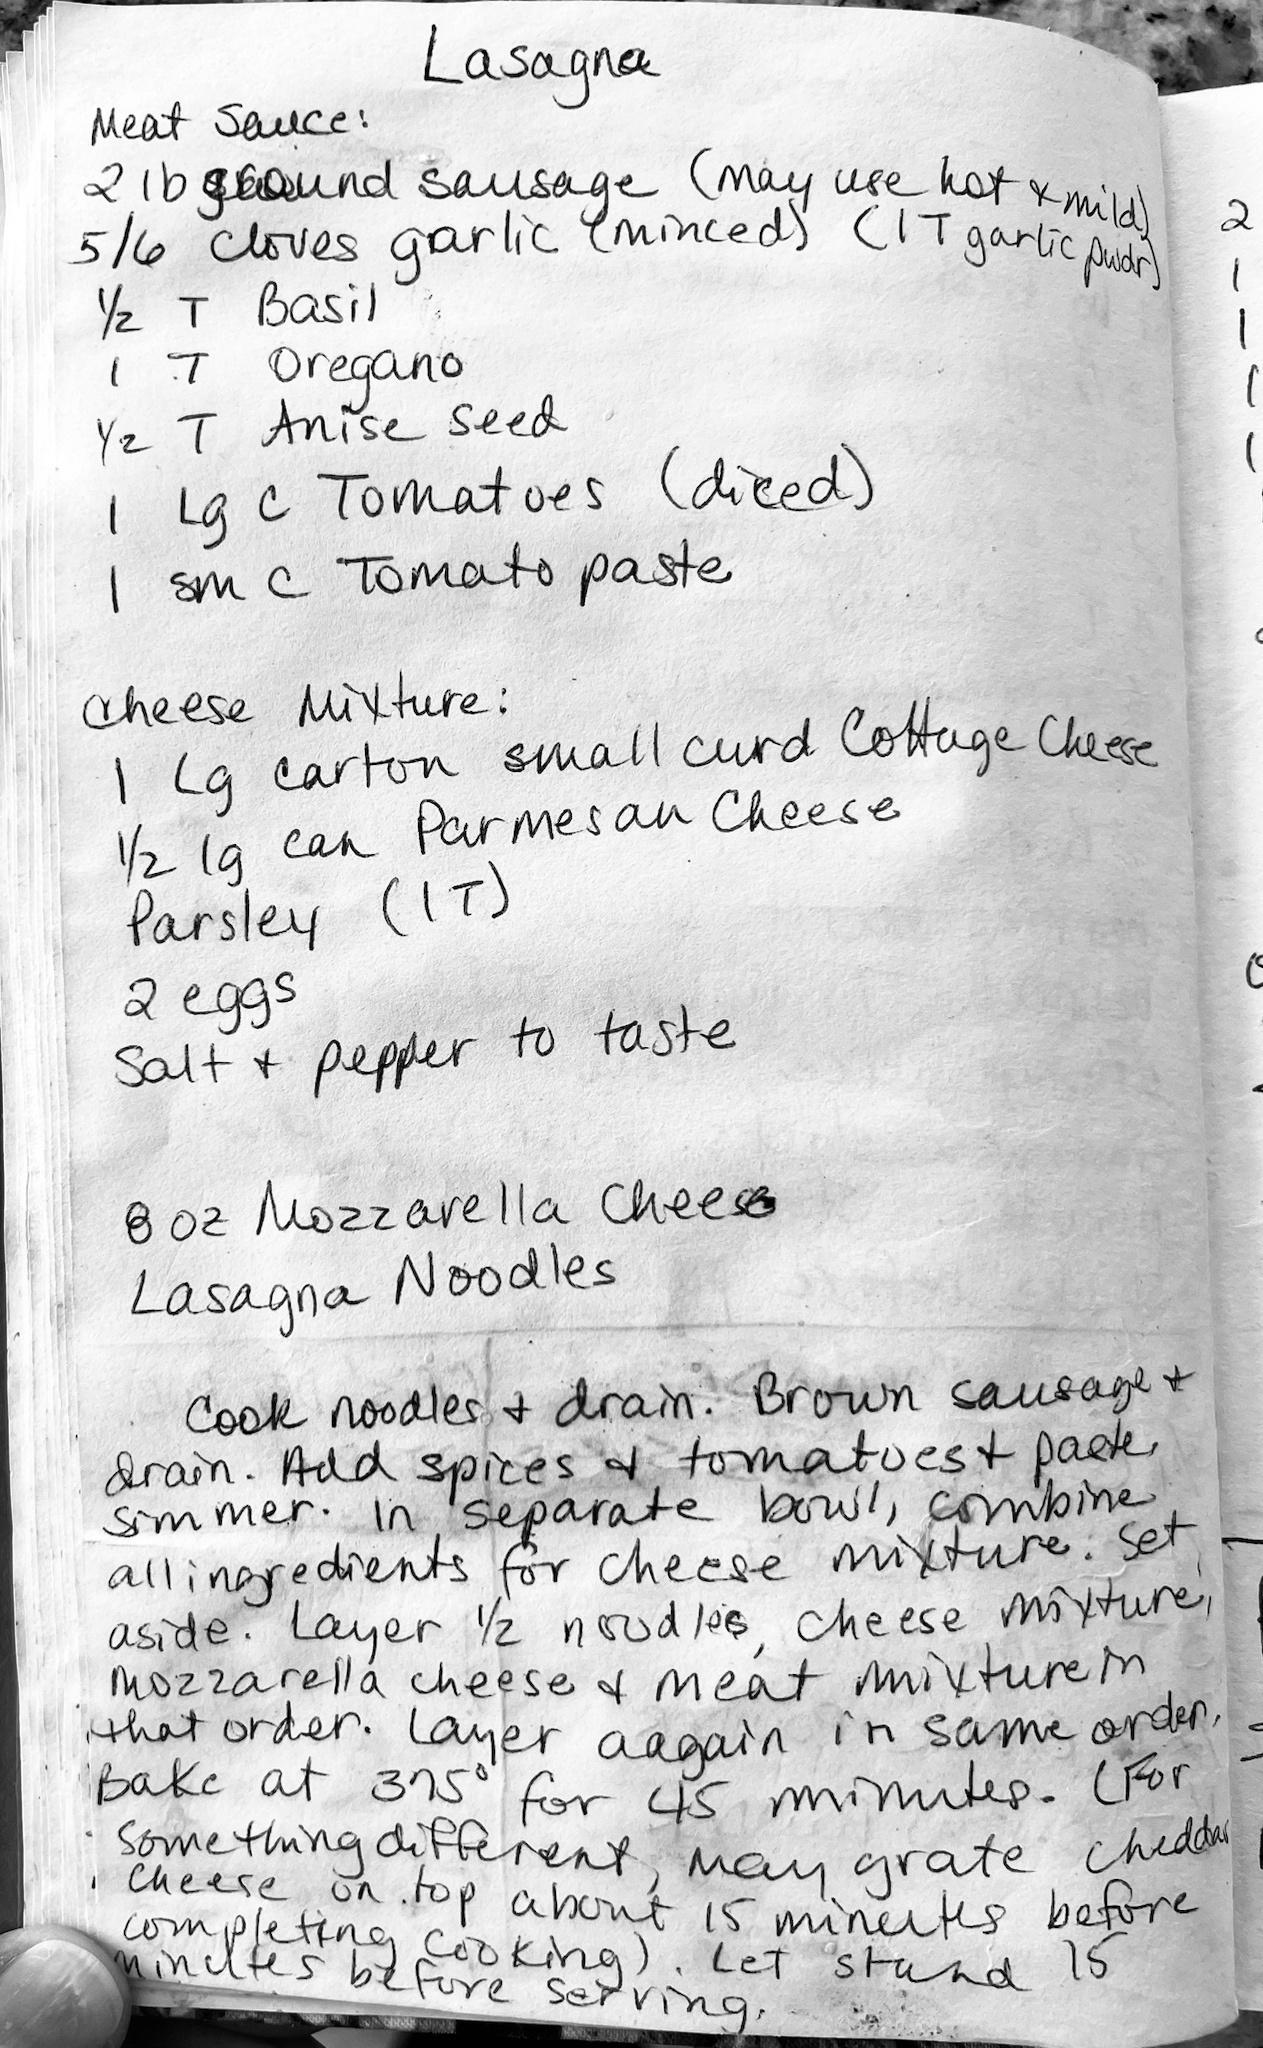 Lasagna
Meat Sauce:
2 lb ground sausage (may use hot & mild)
5/6 cloves garlic (minced) (1 T garlic pwdr)
1/2 T Basil
1 T Oregano
1/2 T Anise seed
1 Lg C Tomatoes (diced)
1 sm C Tomato paste
Cheese Mixture:
1 Lg carton small curd Cottage Cheese
1/2 lg can Parmesan Cheese
Parsley (1 T)
2 eggs
Salt & pepper to taste
8 oz Mozzarella Cheese
Lasagna Noodles
Cook noodles & drain. Brown sausage &
drain. Add spices & tomatoes & paste,
simmer. In separate bowl, combine
all ingredients for cheese mixture. Set
aside. Layer 1/2 noodles, cheese mixture,
mozzarella cheese & meat mixture in
that order. Layer aagain in same order.
Bake at 375° for 45 minutes. (For
something different, may grate cheddar
cheese on top about 15 minutes before
completing cooking). Let stand 15
minutes before serving.
2
1
1
1
1